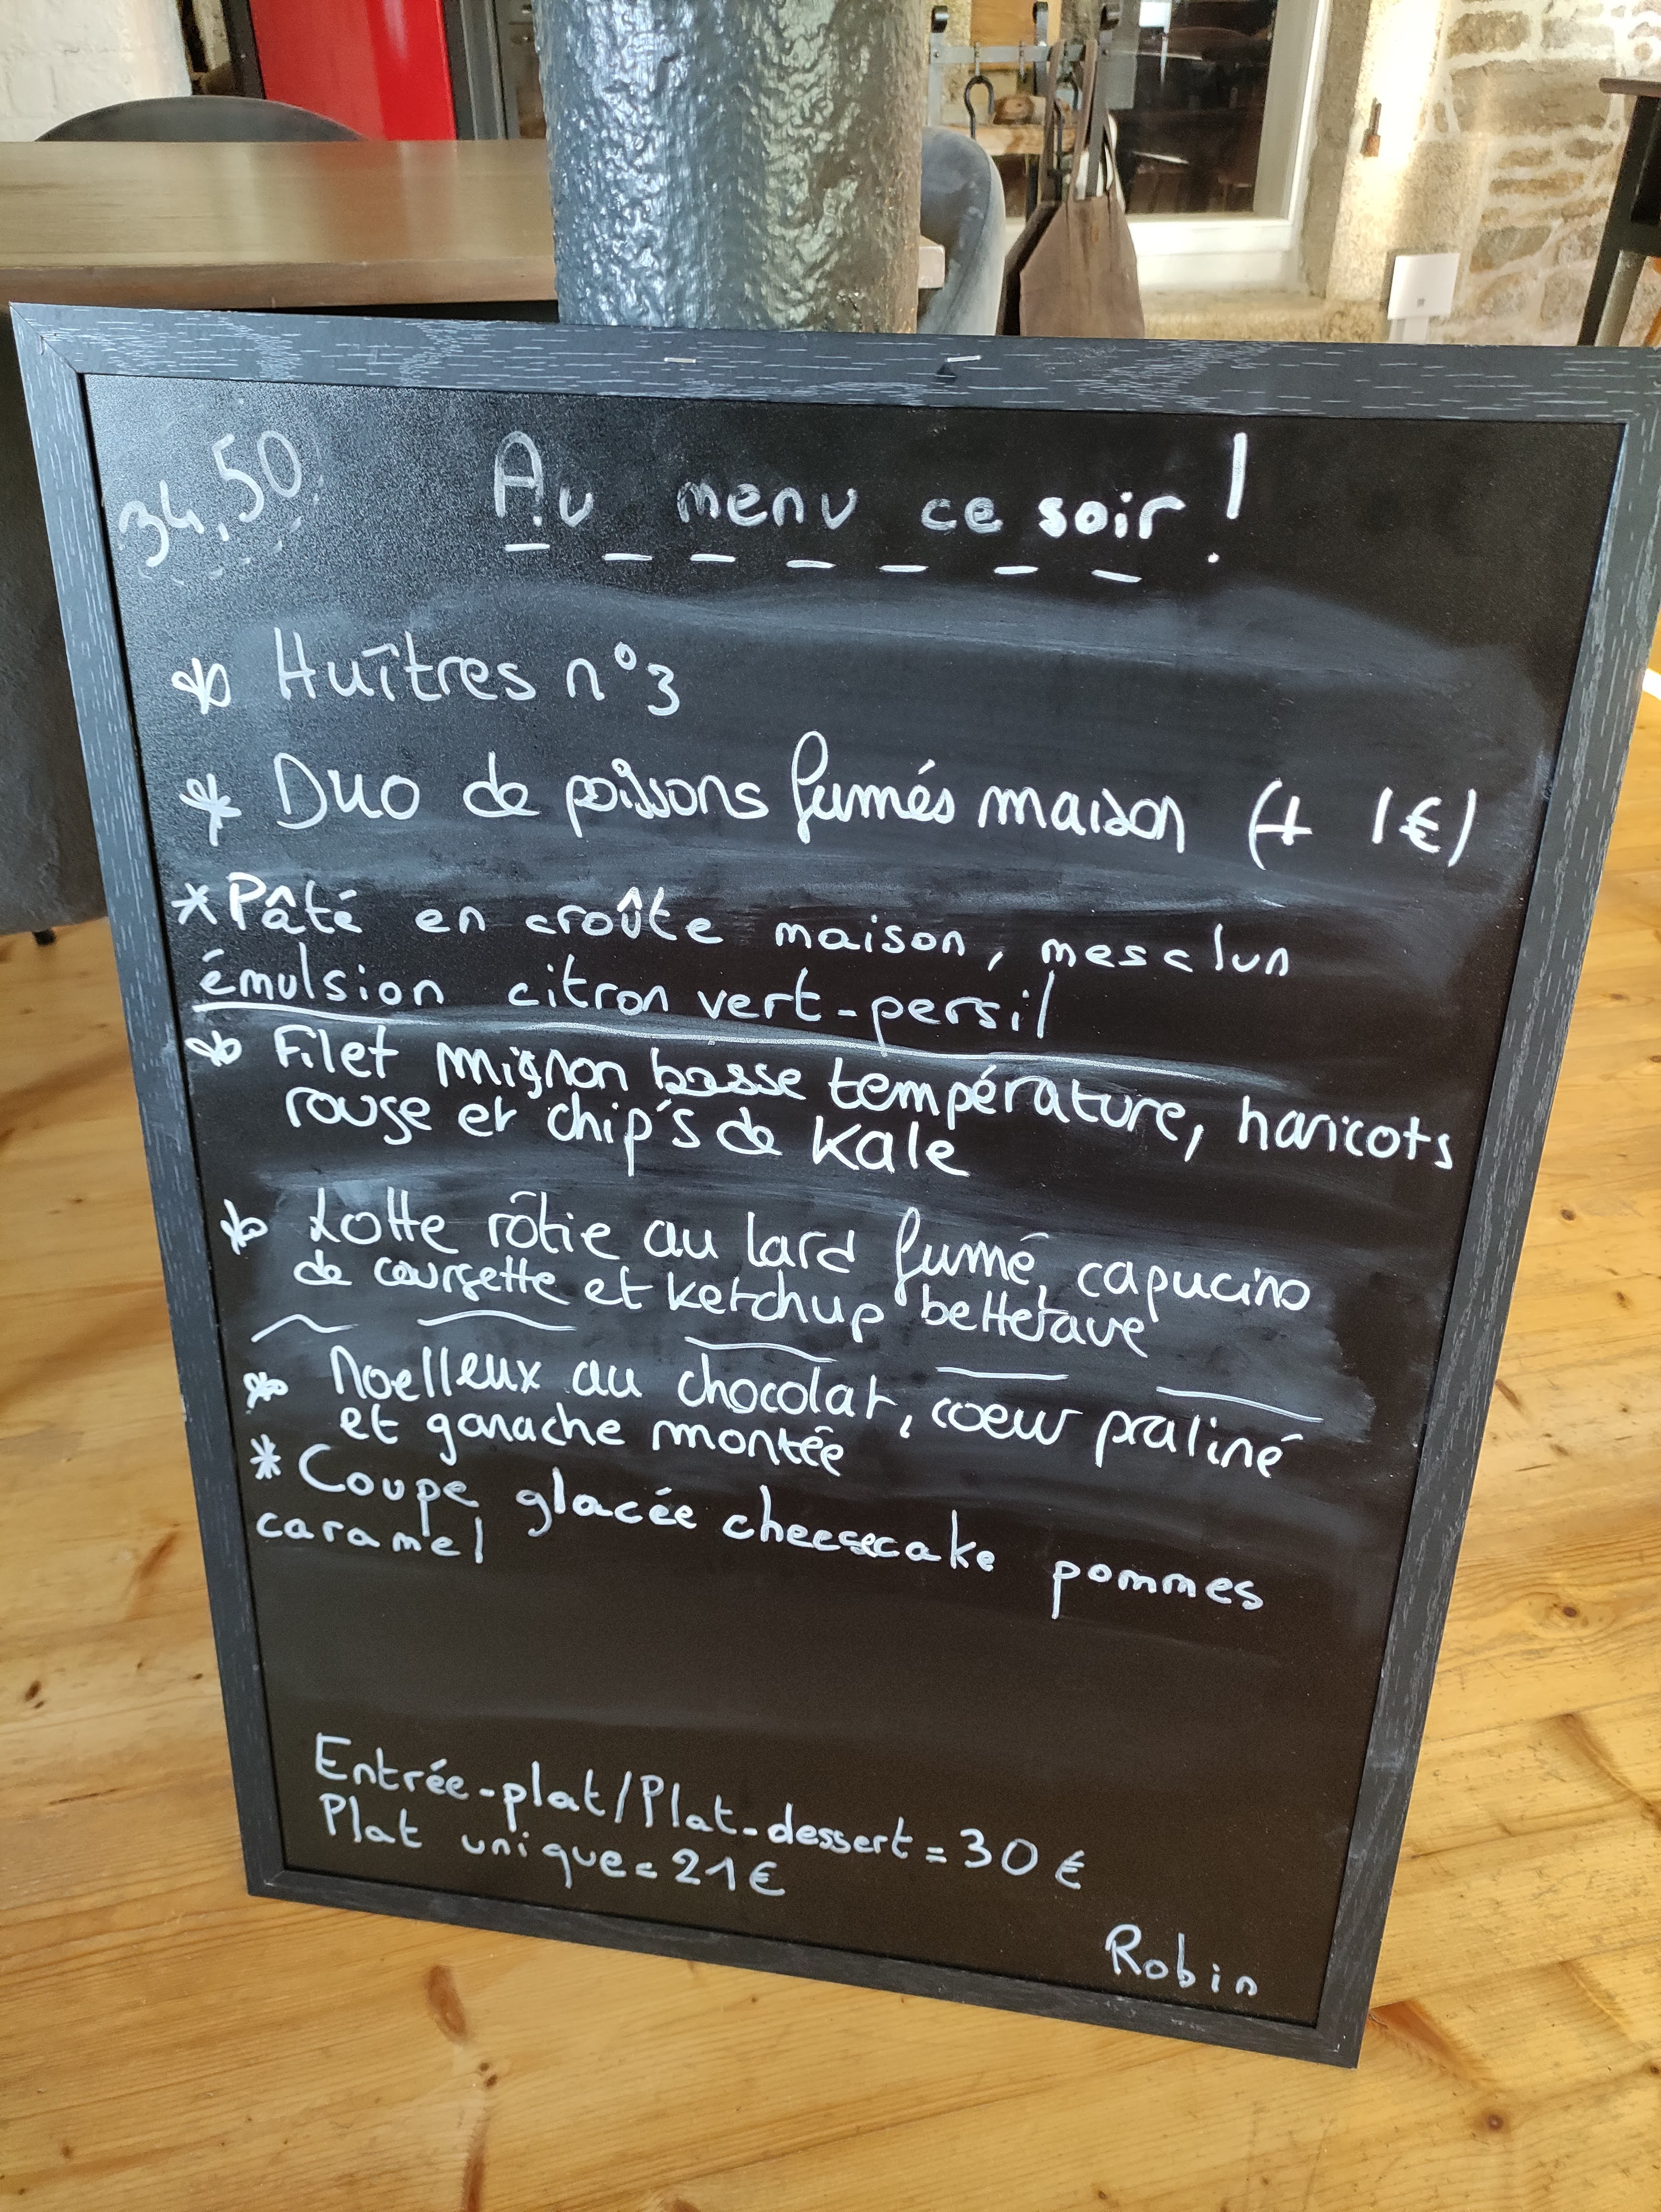 34,50
Au menu ce soir !
* Huîtres n°3
* Duo de poissons fumés maison (+ 1€)
* Pâté en croûte maison, mesclun
émulsion citron vert-persil
* Filet mignon basse température, haricots
rouge et chip's de Kale
* Lotte rôtie au lard fumé, capucino
de courgette et ketchup betterave
* Moelleux au chocolat, coeur praliné
et ganache montée
* Coupe glacée cheesecake pommes
caramel
Entrée-plat/Plat-dessert = 30€
Plat unique = 21€
Robin